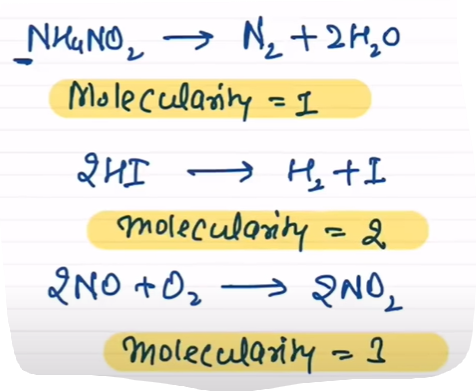 NH₄NO₂ → N₂ + 2H₂O
Molecularity = 1
2HI → H₂ + I
molecularity = 2
2NO + O₂ → 2NO₂
molecularity = 3